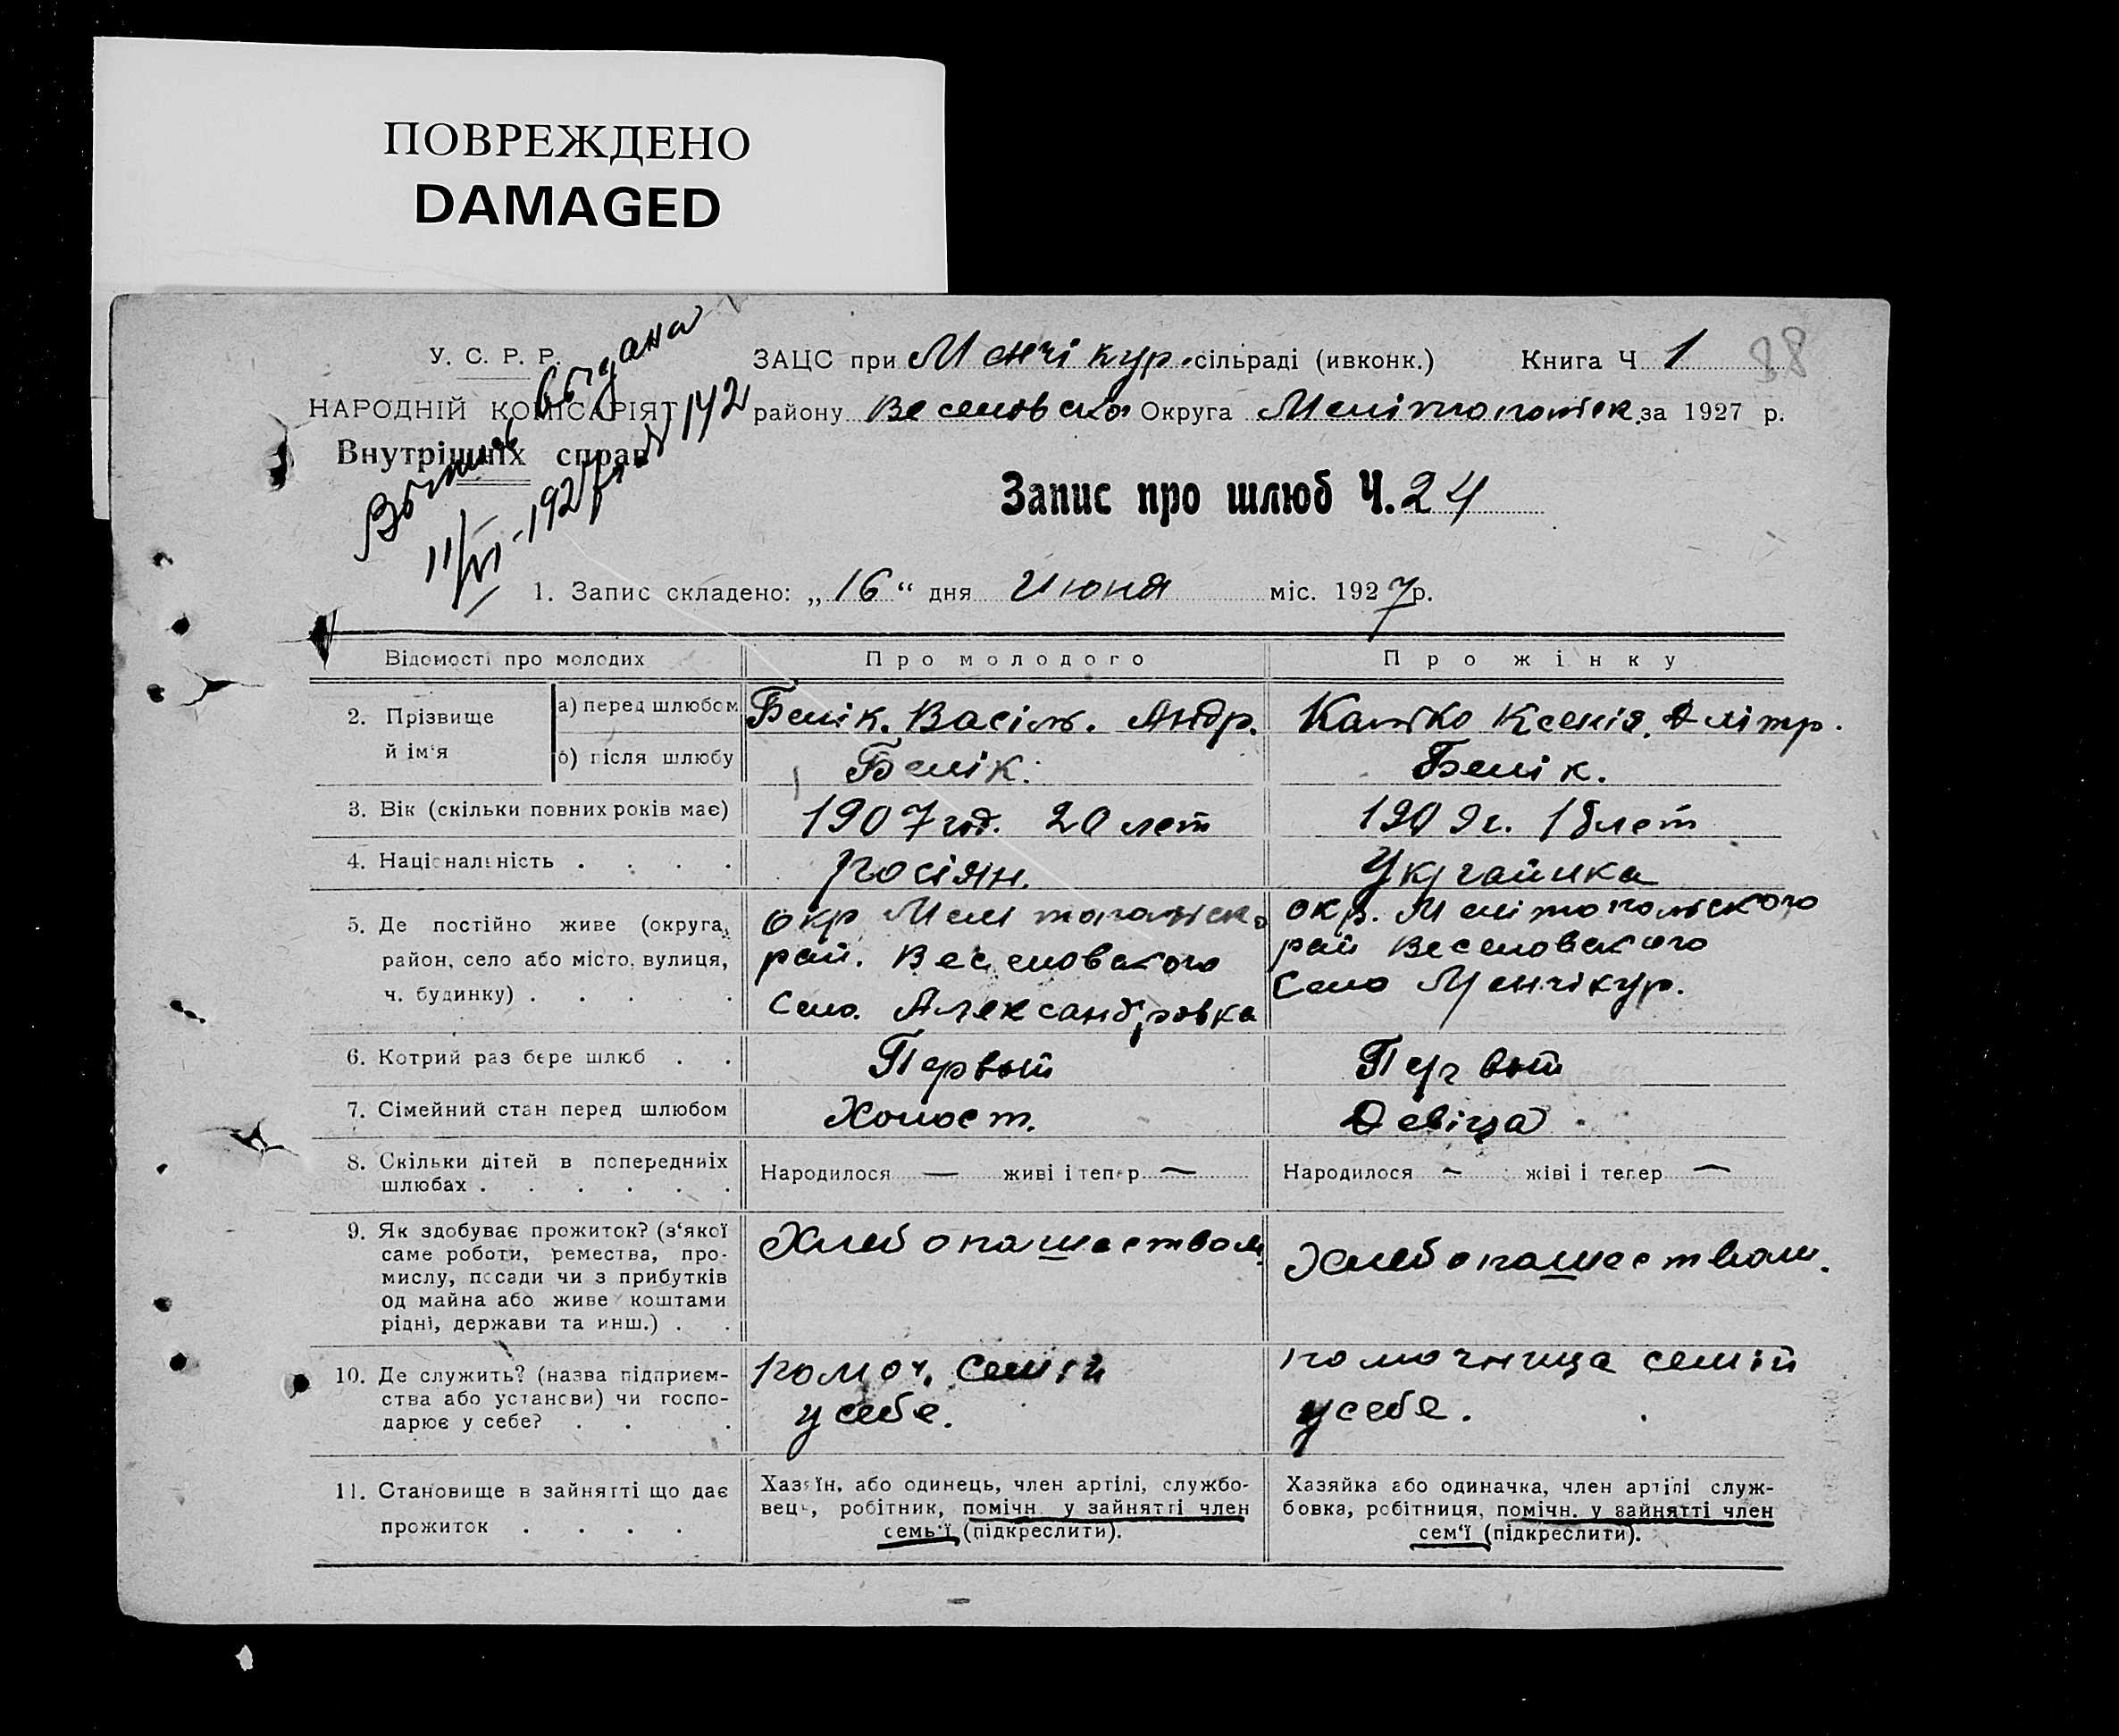 ПОВРЕЖДЕНО
DAMAGED
У. С. Р. Р.
НАРОДНІЙ КОМІСАРІЯТ
Внутрішніх справ
Выпись выдана
11/VI-1927 г. № 142
ЗАЦС при Менчікур. сільраді (ивконк.) Книга Ч 1 38
району Веселовско Округа Мелітопольск. за 1927 р.
Запис про шлюб Ч. 24
1. Запис складено: „16“ дня Июня міс. 1927 р.
Відомості про молодих Про молодого Про жінку
2. Прізвище й ім‘я
а) перед шлюбом Белік. Васіль. Андр. Калько Ксенія. Дмітр.
б) після шлюбу Белік. Белік.
3. Вік (скільки повних років має) 1907 год. 20 лет 1909 г. 18 лет
4. Національність . . . . росіян. Украйнка
5. Де постійно живе (округа, окр Мелітопольско окр. Мелітопольского
район, село або місто, вулиця, рай. Веселовского рай Веселовского
ч. будинку) . . . . . Село. Александровка Село Менчікур.
6. Котрий раз бере шлюб . . Первый Первый
7. Сімейний стан перед шлюбом Холост. Девіца
8. Скільки дітей в попередніх Народилося — живі і тепер — Народилося — жіві і тепер —
шлюбах . . . . . .
9. Як здобуває прожиток? (з‘якої Хлебопашеством Хлебопашеством.
саме роботи, ремества, про-
мислу, посади чи з прибутків
од майна або живе коштами
рідні, держави та инш.) . .
10. Де служить? (назва підприєм- помоч. семій помочница семій
ства або установи) чи госпо- у себе. у себе.
дарює у себе? . . .
11. Становище в зайнятті що дає
прожиток . . . .
Хазяїн, або одинець, член артілі, службо-
вець, робітник, помічн. у зайнятті член
семь‘ї (підкреслити).
Хазяйка або одиначка, член артілі служ-
бовка, робітниця, помічн. у зайнятті член
сем‘ї (підкреслити).